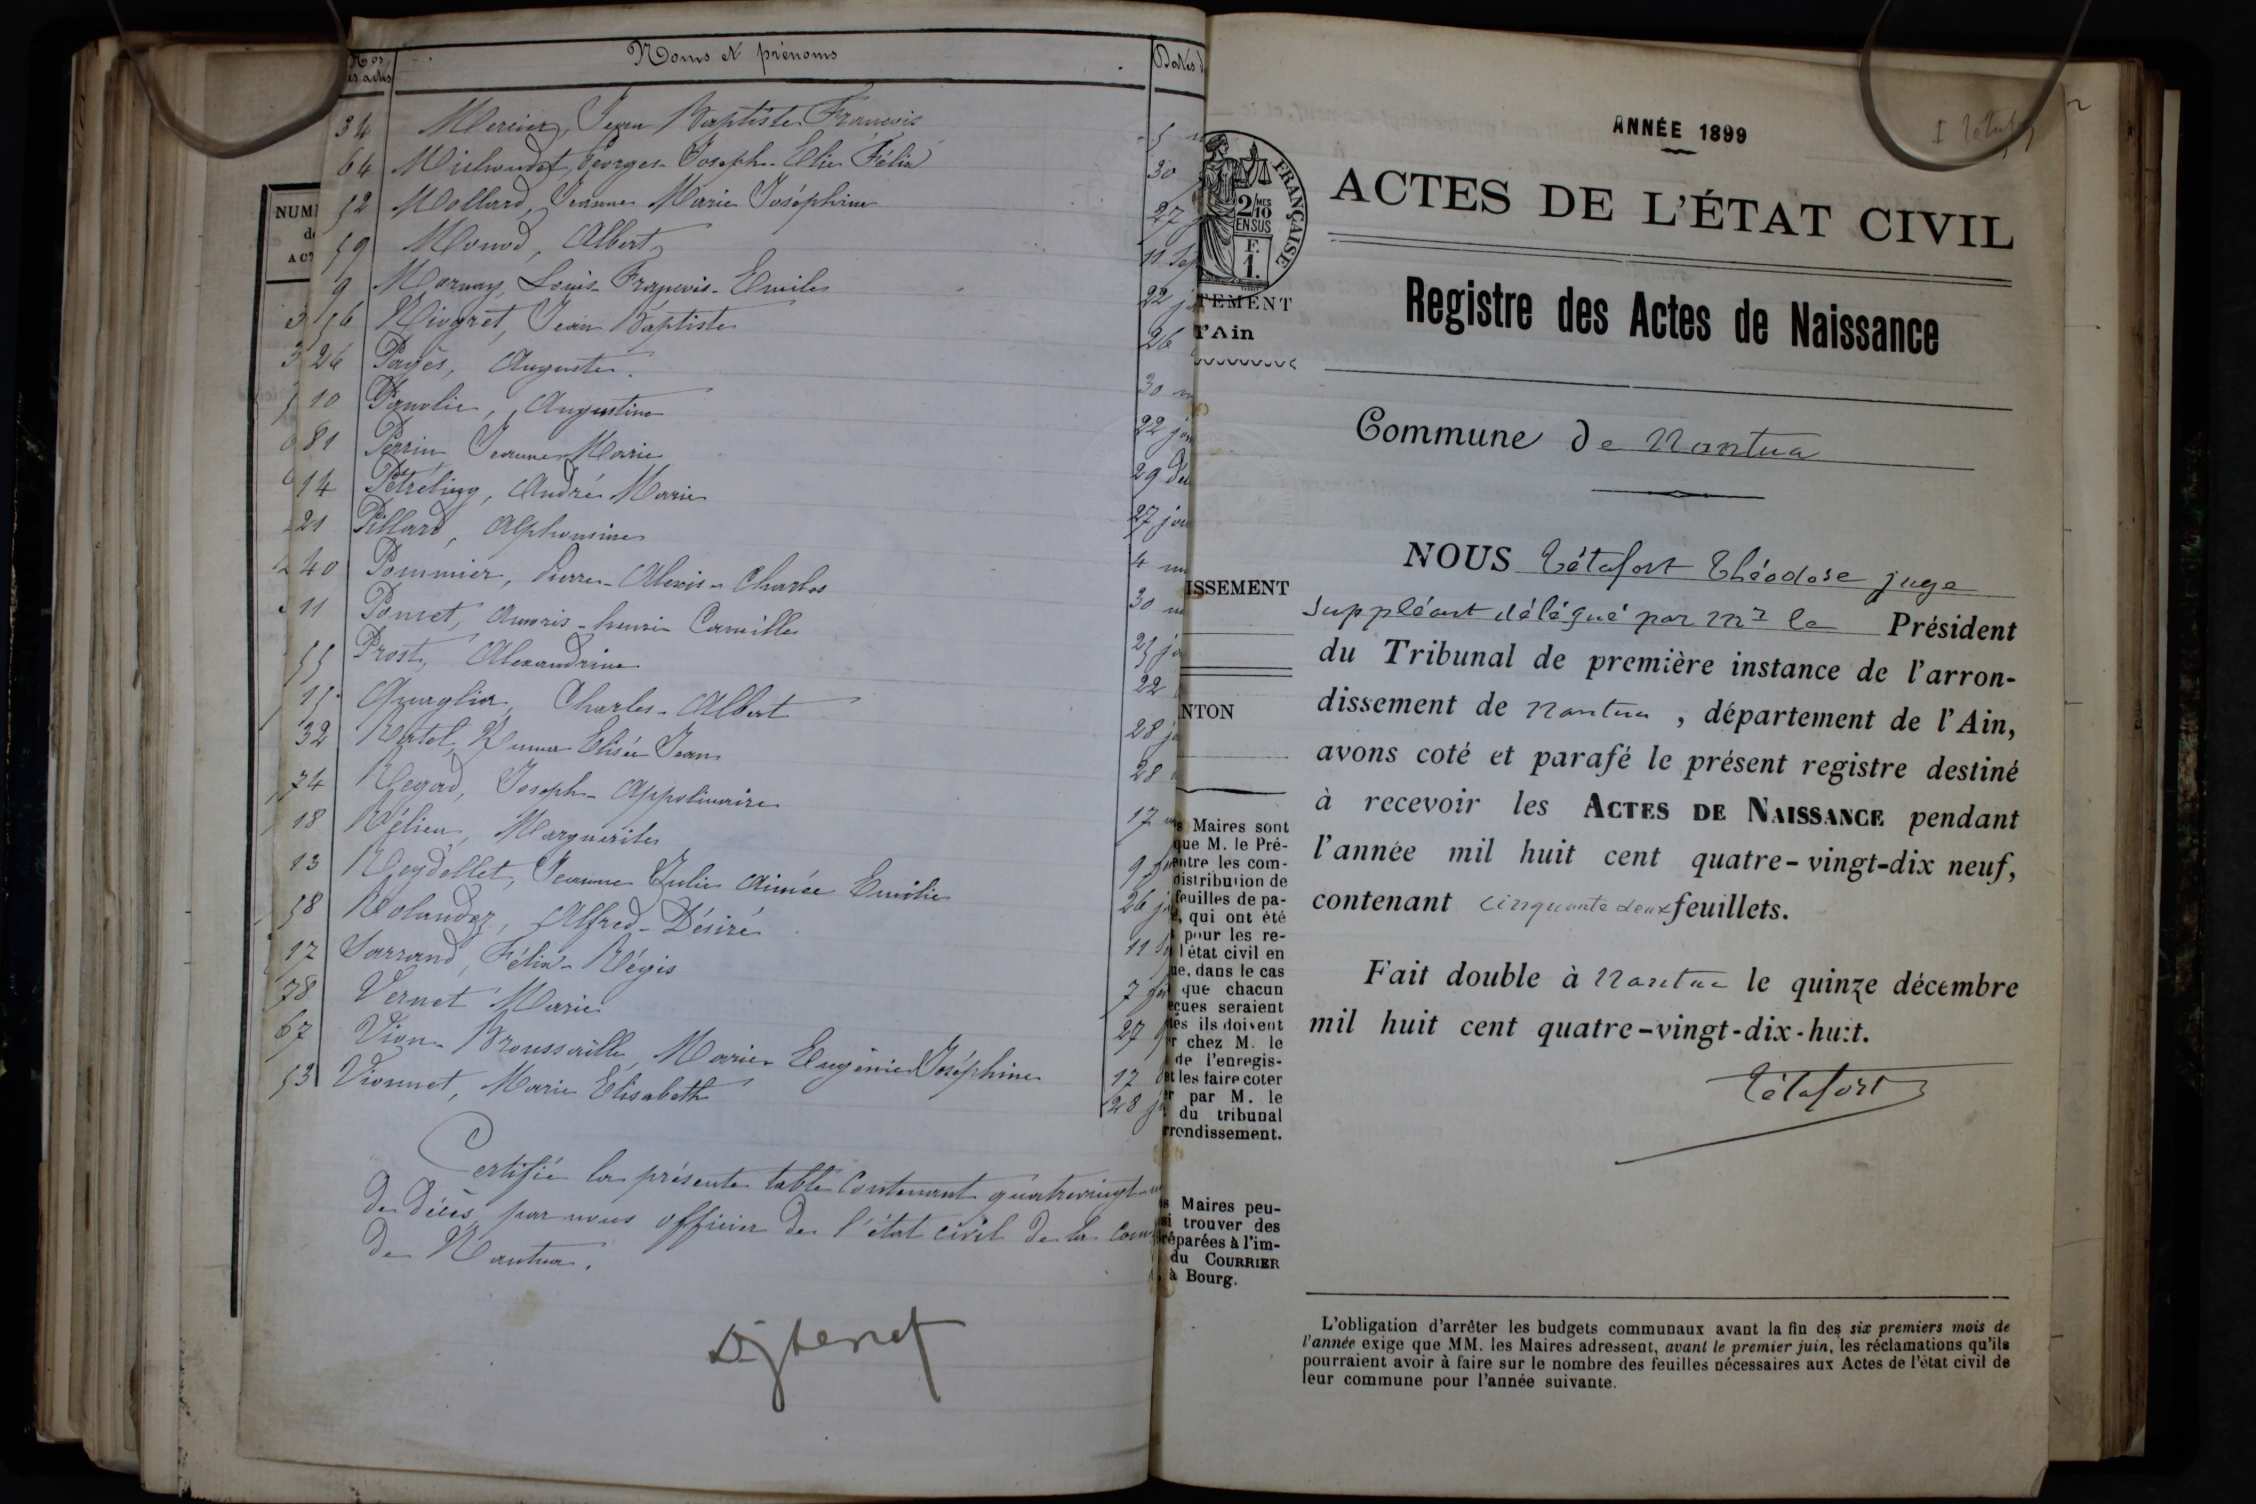 Nos des actes
Noms et prénoms
Dates
34 Mercier, Jean Baptiste François 5
64 Michaudet, Georges Joseph Elie Félix 30
52 Mollard, Jeanne Marie Joséphine 27
59 Monod, Albert 11 Sep
9 Marnay, Louis François Emile 22
56 Nivoret, Jean Baptiste 26
26 Pagès, Auguste 30
10 Augustine 22
81 Perrin Jeanne Marie 29 Dé
14 André Marie 27
21 Pillard, Alphonsine 4
40 Pommier, Pierre Alexis Charles 30
11 Poncet, henri Camille 25
55 Prost, Alexandrine 22
15 Quaglia, Charles Albert 28
32 Elisée Jean 28
74 Regad, Joseph Appolinaire 17
18 Marguerite 9
13 Reydellet, Jeanne Julie Aimée Emilie 26
58 Rolandez, Alfred Désiré 11
17 Sarrand, Félix Régis 7
78 Vernet Marie 27
67 Vion Brousseaille, Marie Eugénie Joséphine 17
53 Vionnet, Marie Elisabeth 28
Certifié la présente table contenant quatrevingt
de décès par nous officier de l'état civil de la com
de Nantua.
NUM
ACT
FRANÇAISE
2/10 MES
EN SUS
F.
1.
TEMENT
l'Ain
ISSEMENT
NTON
Maires sont
que M. le Pré-
entre les com-
distribution de
feuilles de pa-
qui ont été
pour les re-
l'état civil en
ue, dans le cas
que chacun
eçues seraient
ils doivent
chez M. le
de l'enregis-
les faire coter
par M. le
du tribunal
rrondissement.
Maires peu-
trouver des
réparées à l'im-
du COURRIER
à Bourg.
ANNÉE 1899
ACTES DE L'ÉTAT CIVIL
Registre des Actes de Naissance
Commune de Nantua
NOUS Tétafort Théodose juge
suppléant délégué par Mr le Président
du Tribunal de première instance de l'arron-
dissement de Nantua, département de l'Ain,
avons coté et parafé le présent registre destiné
à recevoir les ACTES DE NAISSANCE pendant
l'année mil huit cent quatre-vingt-dix neuf,
contenant cinquante deux feuillets.
Fait double à Nantua le quinze décembre
mil huit cent quatre-vingt-dix-huit.
Tétafort
L'obligation d'arrêter les budgets communaux avant la fin des six premiers mois de
l'année exige que MM. les Maires adressent, avant le premier juin, les réclamations qu'ils
pourraient avoir à faire sur le nombre des feuilles nécessaires aux Actes de l'état civil de
leur commune pour l'année suivante.